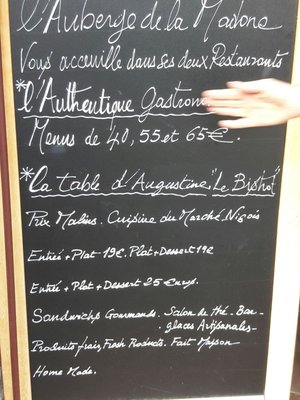 l'Auberge de la Madone
Vous accueille dans ses deux Restaurants
*l'Authentique Gastrono
Menus de 40, 55 et 65€.
*La table d'Augustine "Le Bistrot"
Prix Malins. Cuisine du Marché Niçois
Entrée + Plat 19€. Plat + Dessert 19€
Entrée + Plat + Dessert 25 Euros.
Sandwichs Gourmands. Salon de thé. Bar_
glaces Artisanales_
Produits frais, Fresh Products. Fait Maison
Home Made.